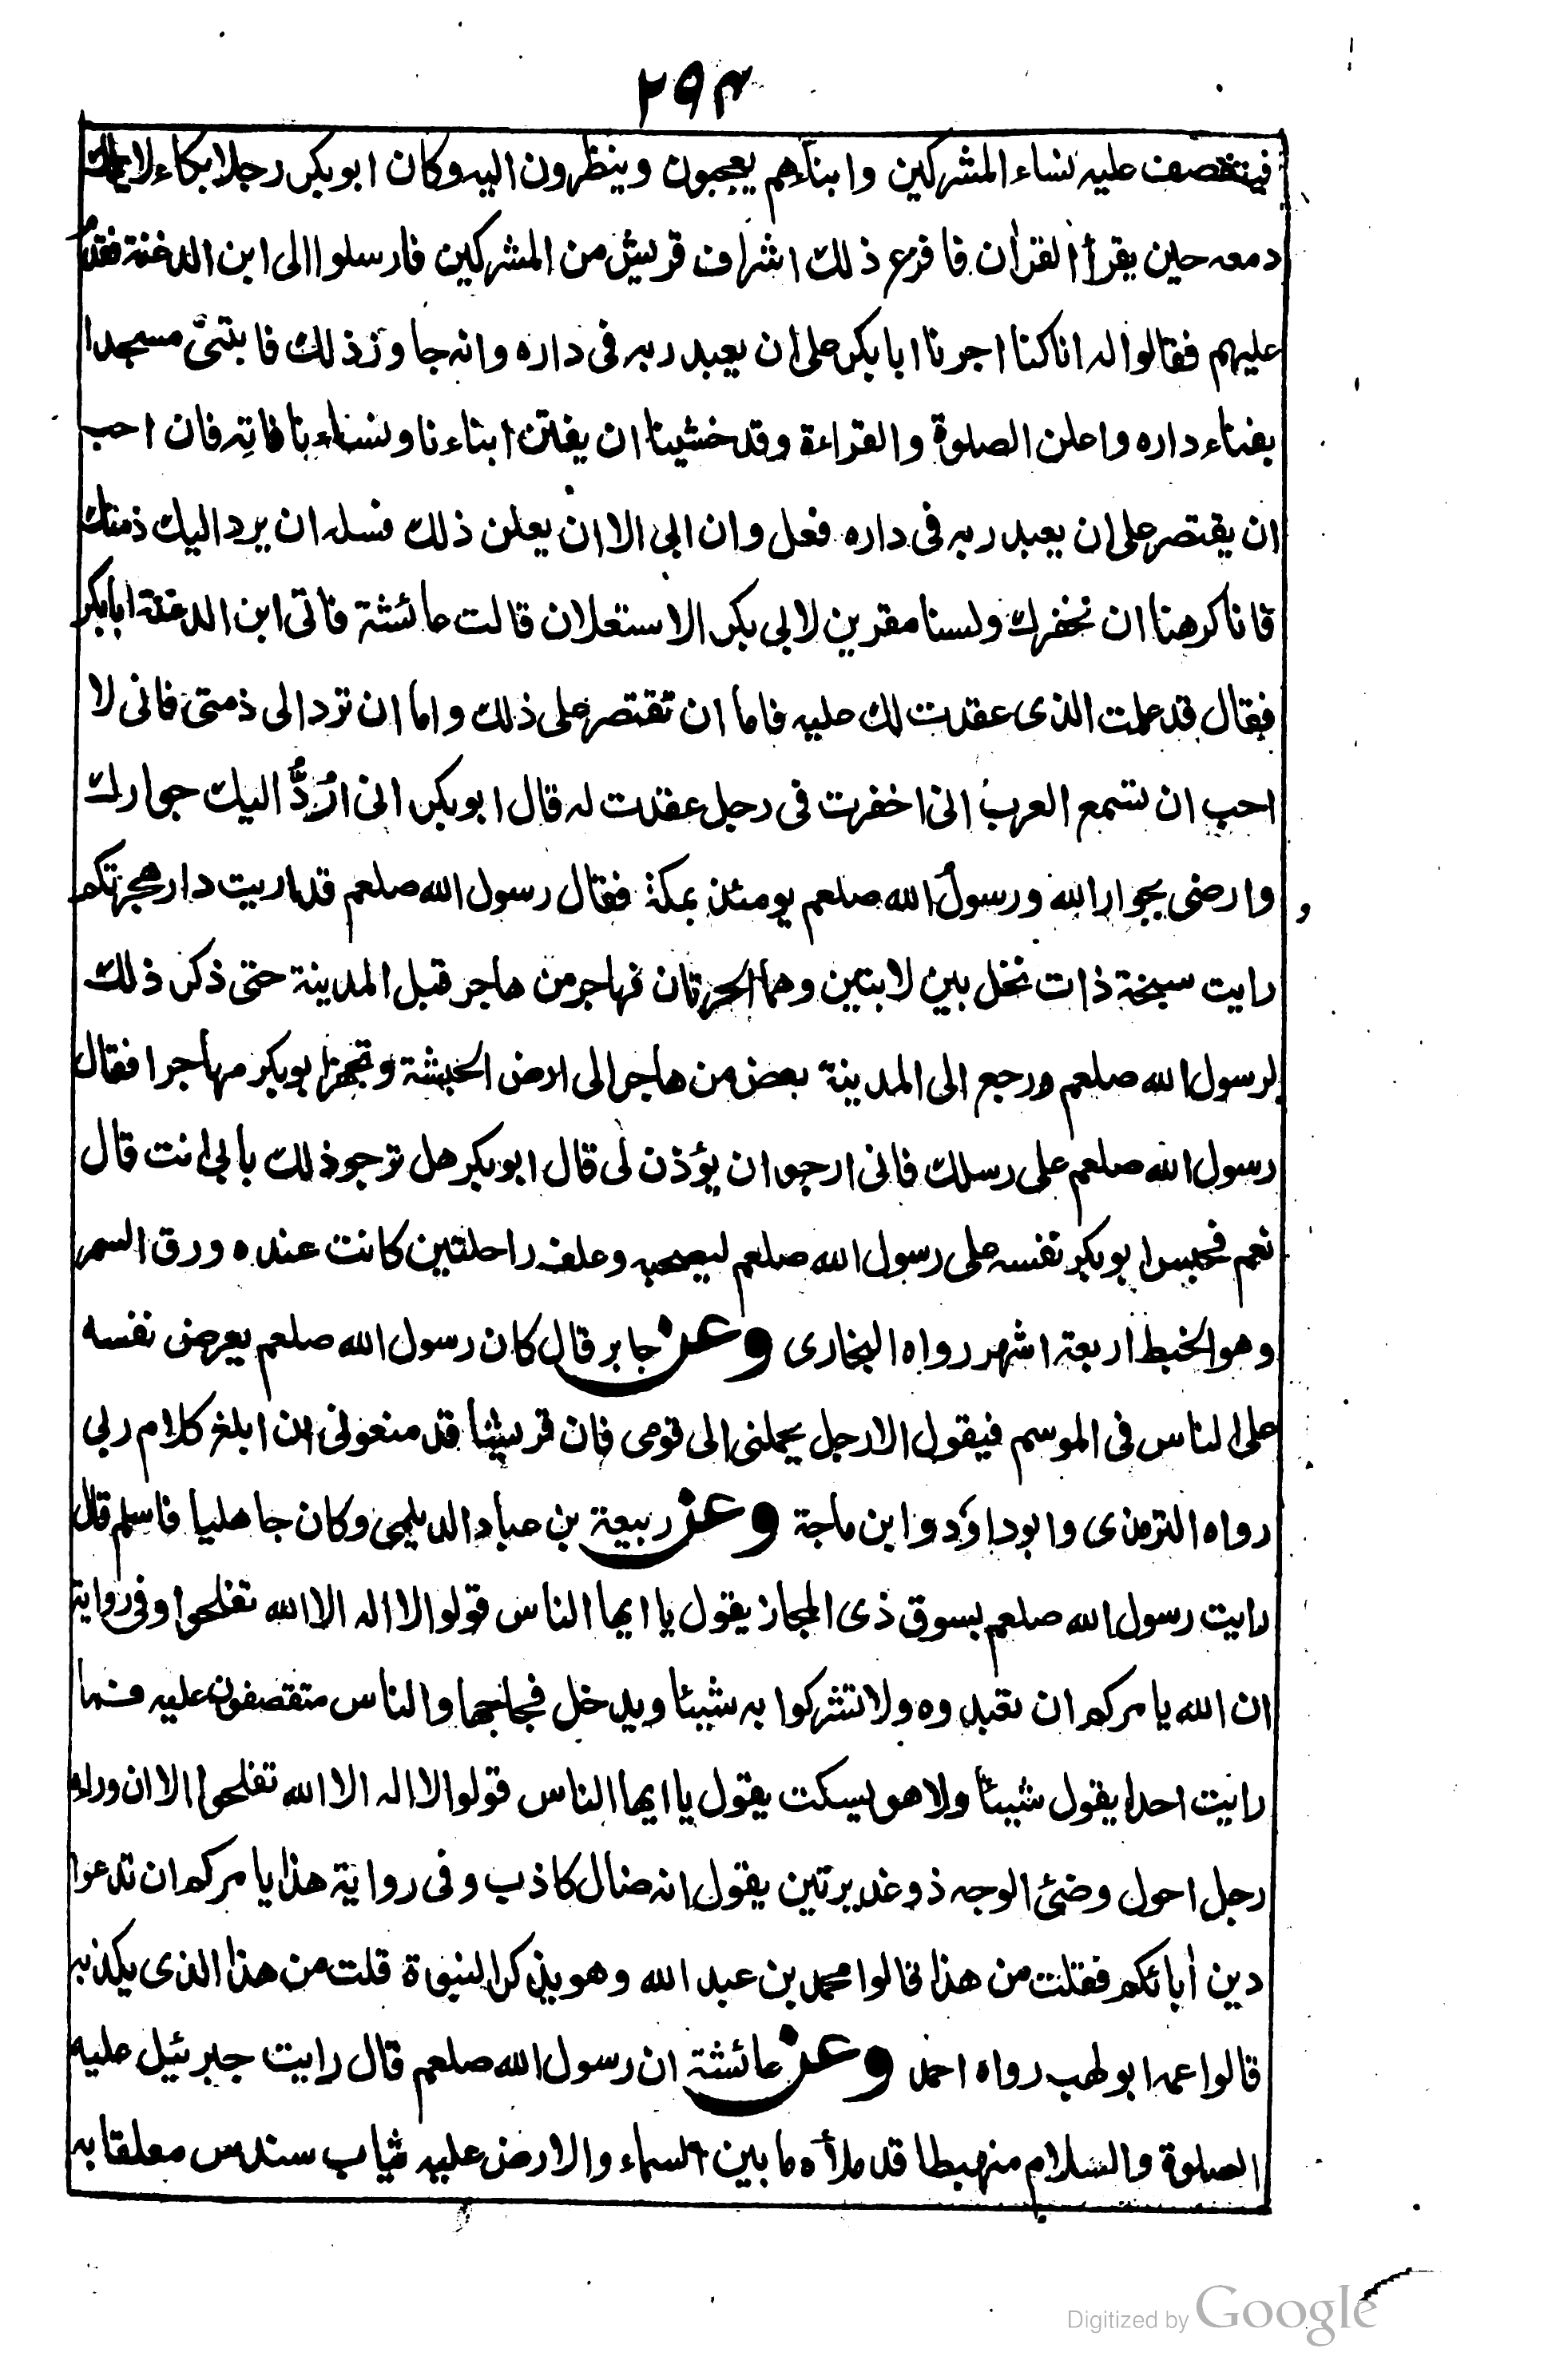 ۲۹۴
فيتقصف عليه نساء المشركين وابناءهم يعجبون وينظرون اليه وكان ابوبكر رجلا بكاء لا يملك
دمعه حين يقرأ القرأن فافزع ذلك اشراف قريش من المشركين فارسلوا الى ابن الدغنة فقدم
عليهم فقالوا له اناكنا اجرنا ابا بكر على ان يعبد ربه فى داره وانه جاوز ذلك فابتنى مسجدا
بفناء داره واعلن الصلوة والقراءة وقد خشينا ان يفتن ابناءنا ونساءنا فاته فان احب
ان يقتصر على ان يعبد ربه فى داره فعل وان ابى الا ان يعلن ذلك فسله ان يرد اليك ذمتك
فانا كرهنا ان نخفرك ولسنا مقرين لابى بكر الاستعلان قالت عائشة فاتى ابن الدغنة ابابكر
فقال قد علمت الذى عقدت لك عليه فاما ان تقتصر على ذلك واما ان ترد الى ذمتى فانى لا
احب ان تسمع العرب انى اخفرت فى رجل عقدت له قال ابوبكر انى ارُدُّ اليك جوارك
وارضى بجوار الله ورسول الله صلعم يومئذ بمكة فقال رسول الله صلعم قد اريت دار هجرتكم
رايت سبخة ذات نخل بين لابتين وهما الحرتان فهاجر من هاجر قبل المدينة حتى ذكر ذلك
لرسول الله صلعم ورجع الى المدينة بعض من هاجر الى ارض الحبشة وتجهز ابوبكر مهاجرا فقال
رسول الله صلعم على رسلك فانى ارجو ان يؤذن لى قال ابوبكر هل ترجو ذلك بابى انت قال
نعم فحبس ابوبكر نفسه على رسول الله صلعم ليصحبه وعلف راحلتين كانت عنده ورق السمر
وهو الخبط اربعة اشهر رواه البخارى وعن جابر قال كان رسول الله صلعم يعرض نفسه
على الناس فى الموسم فيقول الا رجل يحملنى الى قومى فان قريشا قد منعونى ان ابلغ كلام ربى
رواه الترمذى وابوداؤد وابن ماجة وعن ربيعة بن عباد الديلمى وكان جاهليا فاسلم قال
رايت رسول الله صلعم بسوق ذى المجاز يقول يا ايها الناس قولوا لا اله الا الله تفلحوا وفى رواية
ان الله يامركم ان تعبدوه ولا تشركوا به شيئا ويدخل فجاجها والناس متقصفون عليه فما
رايت احدا يقول شيئا ولا هو يسكت يقول يا ايها الناس قولوا لا اله الا الله تفلحوا الا ان وراءه
رجل احول وضئ الوجه ذو غديرتين يقول انه ضال كاذب وفى رواية هذا يامركم ان تدعوا
دين أبائكم فقلت من هذا قالوا محمد بن عبد الله وهو يذكر النبوة قلت من هذا الذى يكذبه
قالوا عمه ابو لهب رواه احمد وعن عائشة ان رسول الله صلعم قال رايت جبرئيل عليه
الصلوة والسلام منهبطا قد ملأه ما بين السماء والارض عليه ثياب سندس معلقا به
Digitized by Google